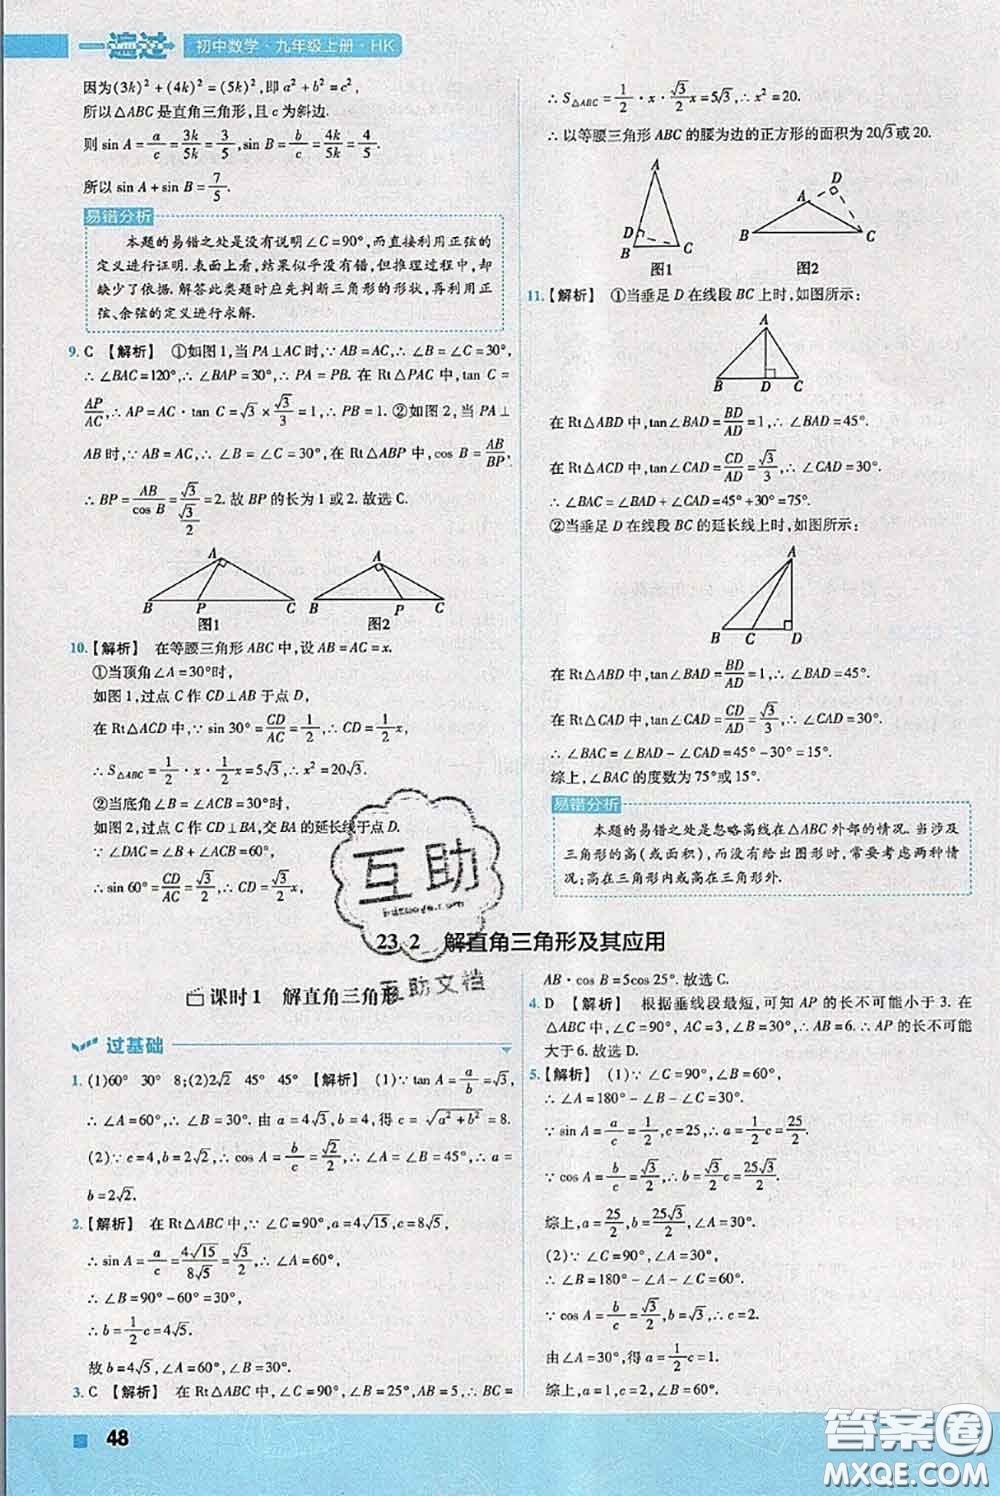 一遍过 初中数学·九年级上册·HK
因为(3k)²+(4k)²=(5k)²,即a²+b²=c²,
所以△ABC是直角三角形,且c为斜边.
则sin A=a/c=3k/5k=3/5,sin B=b/c=4k/5k=4/5.
所以sin A+sin B=7/5.
易错分析
本题的易错之处是没有说明∠C=90°,而直接利用正弦的
定义进行证明.表面上看,结果似乎没有错,但推理过程中,却
缺少了依据.解答此类题时应先判断三角形的形状,再利用正
弦、余弦的定义进行求解.
9. C 【解析】 ①如图1,当PA⊥AC时,∵AB=AC,∴∠B=∠C=30°,
∴∠BAC=120°,∴∠BAP=30°,∴PA=PB.在Rt△PAC中,tan C=
AP/AC,∴AP=AC·tan C=√3×√3/3=1,∴PB=1.②如图2,当PA⊥
AB时,∵AB=AC,∴∠B=∠C=30°.在Rt△ABP中,cos B=AB/BP,
∴BP=AB/cos B=√3/(√3/2)=2.故BP的长为1或2.故选C.
A B P C A B P C
图1 图2
10.【解析】 在等腰三角形ABC中,设AB=AC=x.
①当顶角∠A=30°时,
如图1,过点C作CD⊥AB于点D,
在Rt△ACD中,∵sin 30°=CD/AC=1/2,∴CD=1/2x,
∴S△ABC=1/2·x·1/2x=5√3,∴x²=20√3.
②当底角∠B=∠ACB=30°时,
如图2,过点C作CD⊥AB,交BA的延长线于点D.
∵∠DAC=∠B+∠ACB=60°,
∴sin 60°=CD/AC=√3/2,∴CD=√3/2x,
∴S△ABC=1/2·x·√3/2x=5√3,∴x²=20.
∴以等腰三角形ABC的腰为边的正方形的面积为20√3或20.
A D B C A D B C
图1 图2
11.【解析】 ①当垂足D在线段BC上时,如图所示:
A B D C
在Rt△ABD中,tan∠BAD=BD/AD=1,∴∠BAD=45°.
在Rt△ACD中,tan∠CAD=CD/AD=√3/3,∴∠CAD=30°.
∴∠BAC=∠BAD+∠CAD=45°+30°=75°.
②当垂足D在线段BC的延长线上时,如图所示:
A B C D
在Rt△ABD中,tan∠BAD=BD/AD=1,∴∠BAD=45°.
在Rt△ACD中,tan∠CAD=CD/AD=√3/3,∴∠CAD=30°.
∴∠BAC=∠BAD-∠CAD=45°-30°=15°.
综上,∠BAC的度数为75°或15°.
易错分析
本题的易错之处是忽略高线在△ABC外部的情况.当涉及
三角形的高(或面积),而没有给出图形时,常要考虑两种情
况:高在三角形内或高在三角形外.
互助
互助文档
23.2 解直角三角形及其应用
课时1 解直角三角形
过基础
1. (1)60° 30° 8;(2)2√2 45° 45° 【解析】 (1)∵tan A=a/b=√3,
∴∠A=60°,∴∠B=30°.由a=4√3,b=4,得c=√(a²+b²)=8.
(2)∵c=4,b=2√2,∴cos A=b/c=√2/2,∴∠A=∠B=45°,∴a=
b=2√2.
2.【解析】 在Rt△ABC中,∵∠C=90°,a=4√15,c=8√5,
∴sin A=a/c=4√15/8√5=√3/2,∴∠A=60°,
∴∠B=90°-60°=30°,
∴b=1/2c=4√5.
故b=4√5,∠A=60°,∠B=30°.
3. C 【解析】 在Rt△ABC中,∠C=90°,∠B=25°,AB=5,∴BC=
AB·cos B=5cos 25°.故选C.
4. D 【解析】 根据垂线段最短,可知AP的长不可能小于3.在
△ABC中,∠C=90°,AC=3,∠B=30°,∴AB=6.∴AP的长不可能
大于6.故选D.
5.【解析】 (1)∵∠C=90°,∠B=60°,
∴∠A=180°-∠B-∠C=30°.
∵sin A=a/c=1/2,c=25,∴a=1/2c=25/2.
∵cos A=b/c=√3/2,∴b=√3/2c=25√3/2.
综上,a=25/2,b=25√3/2,∠A=30°.
(2)∵∠C=90°,∠A=30°,
∴∠B=180°-∠A-∠C=60°.
∵cos A=b/c=√3/2,b=√3,∴c=2.
由∠A=30°,得a=1/2c=1.
综上,a=1,c=2,∠B=60°.
48
答案圈
MXQE.COM